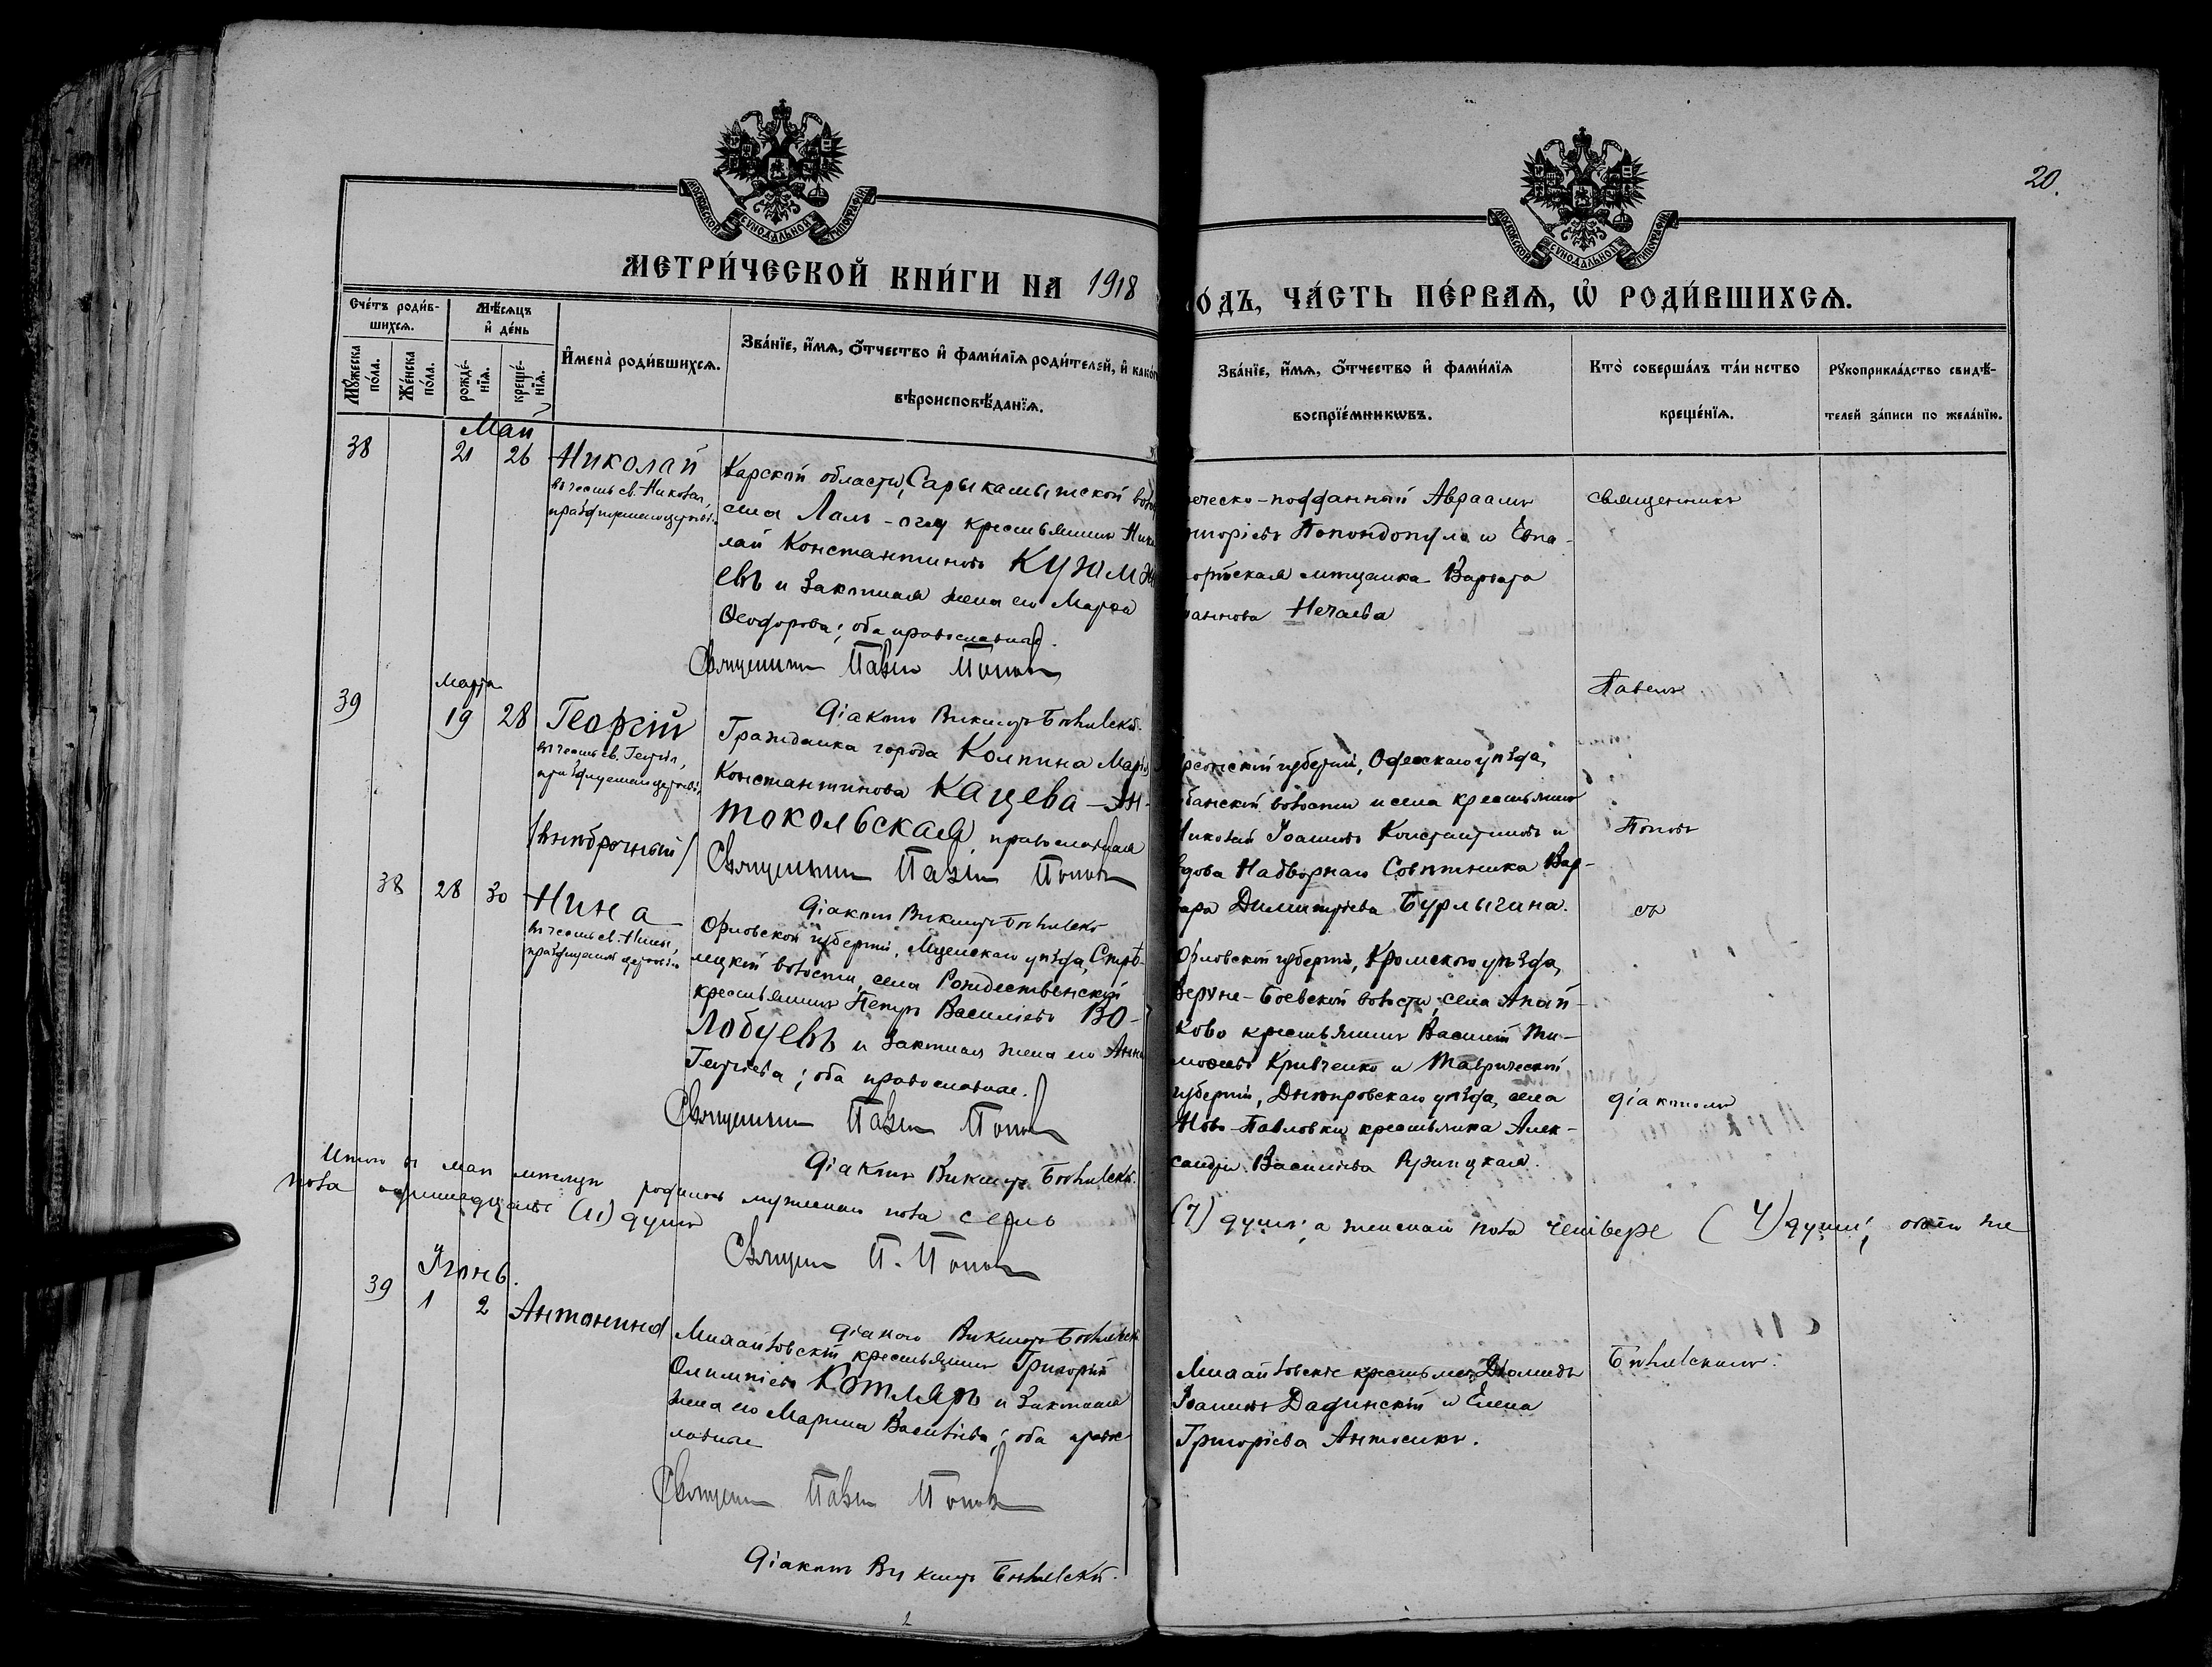 20.
МОСКОВСКОЙ СѴНОДАЛЬНОЙ ТИПОГРАФІИ
МОСКОВСКОЙ СѴНОДАЛЬНОЙ ТИПОГРАФІИ
МЕТРИ́ЧЕСКОЙ КНИ́ГИ НА 1918
О́ДЪ, ЧА́СТЬ ПЕ́РВАЯ, Ѽ РОДИ́ВШИХСЯ.
Сче́тъ роди́в-
шихся.
Мѣ́сяцъ
и де́нь
Мꙋ́жеска
по́ла.
Же́нска
по́ла.
рожде́-
нїя.
креще́-
нїя.
И҆мена̀ роди́вшихся.
Зва́нїе, и҆́мя, ѻ҆́тчество и҆ фами́лїя роди́телей, и҆ како́г
вѣроисповѣ́данїя.
Зва́нїе, и҆́мя, ѻ҆́тчество и҆ фами́лїя
воспрїе́мникѡвъ.
Кто̀ соверша́лъ та́инство
креще́нїя.
Рꙋкоприкла́дство свидѣ́-
телей за́писи по жела́нїю.
Май
38 21 26 Николай
въ честь св. Николая,
Карской области, Сарыкамышской воло
села Лалъ-оглу крестьянинъ Нико
лай Константиновъ
евъ и законная жена его Марѳа
Ѳеодорова; оба православные.
Священникъ Павелъ Поповъ
Діаконъ Викторъ
реческо-подданный Авраамъ
ригоріевъ Попондопуло и Евпа-
торійская мѣщанка Варвара
оаннова Нечаева
Священникъ
Павелъ
Поповъ
съ
діакономъ
Марта
39 19 28 Георгій
въ честь св. Георгія,
(внѣбрачный)
Гражданка города Колпина Марія
Константинова Кацева-Ан-
токольская, православная
Священникъ Павелъ Поповъ
Діаконъ Викторъ
рсонской губерніи, Одесскаго уѣзда,
банской волости и села крестьянинъ
Николай Іоанновъ Константиновъ и
вдова Надворнаго Совѣтника Вар-
вара Димитріева Бурлыгина.
38 28 30 Нина
въ честь св. Нины,
Орловской губерніи, Мценскаго уѣзда, Стрѣ-
лецкой волости, села Рождественскій
крестьянинъ Петръ Василіевъ Во-
лобуевъ и законная жена его Анна
Георгіева; оба православные.
Священникъ Павелъ Поповъ
Діаконъ Викторъ
Орловской губерніи, Кромскаго уѣзда,
Верхне-Боевской волости, села Апай-
ково крестьянинъ Василій Ти-
моѳеевъ Кривченко и Таврической
губерніи, Днѣпровскаго уѣзда, села
Ново-Павловки крестьянка Алек-
сандра Василіева
Итого въ маѣ мѣсяцѣ родилось мужескаго пола семь
(7) душъ; а женскаго пола четверо (4) души, обоего же
пола одиннадцать (11) душъ
Священ. П. Поповъ
Діаконъ Викторъ
Іюнь.
39 1 2 Антонина
Михайловскій крестьянинъ Григорій
Олимпіевъ Котляръ и законная
жена его Марина Василіева; оба право-
славные
Священникъ Павелъ Поповъ
Діаконъ Викторъ
Михайловскіе крестьяне Діомидъ
Іоанновъ Дадинскій и Елена
Григоріева Антосикъ.